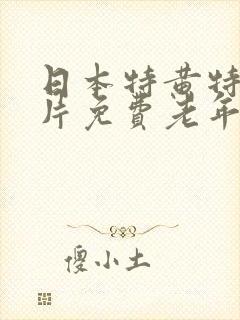 日本特黄特
片免费老年
傻小土